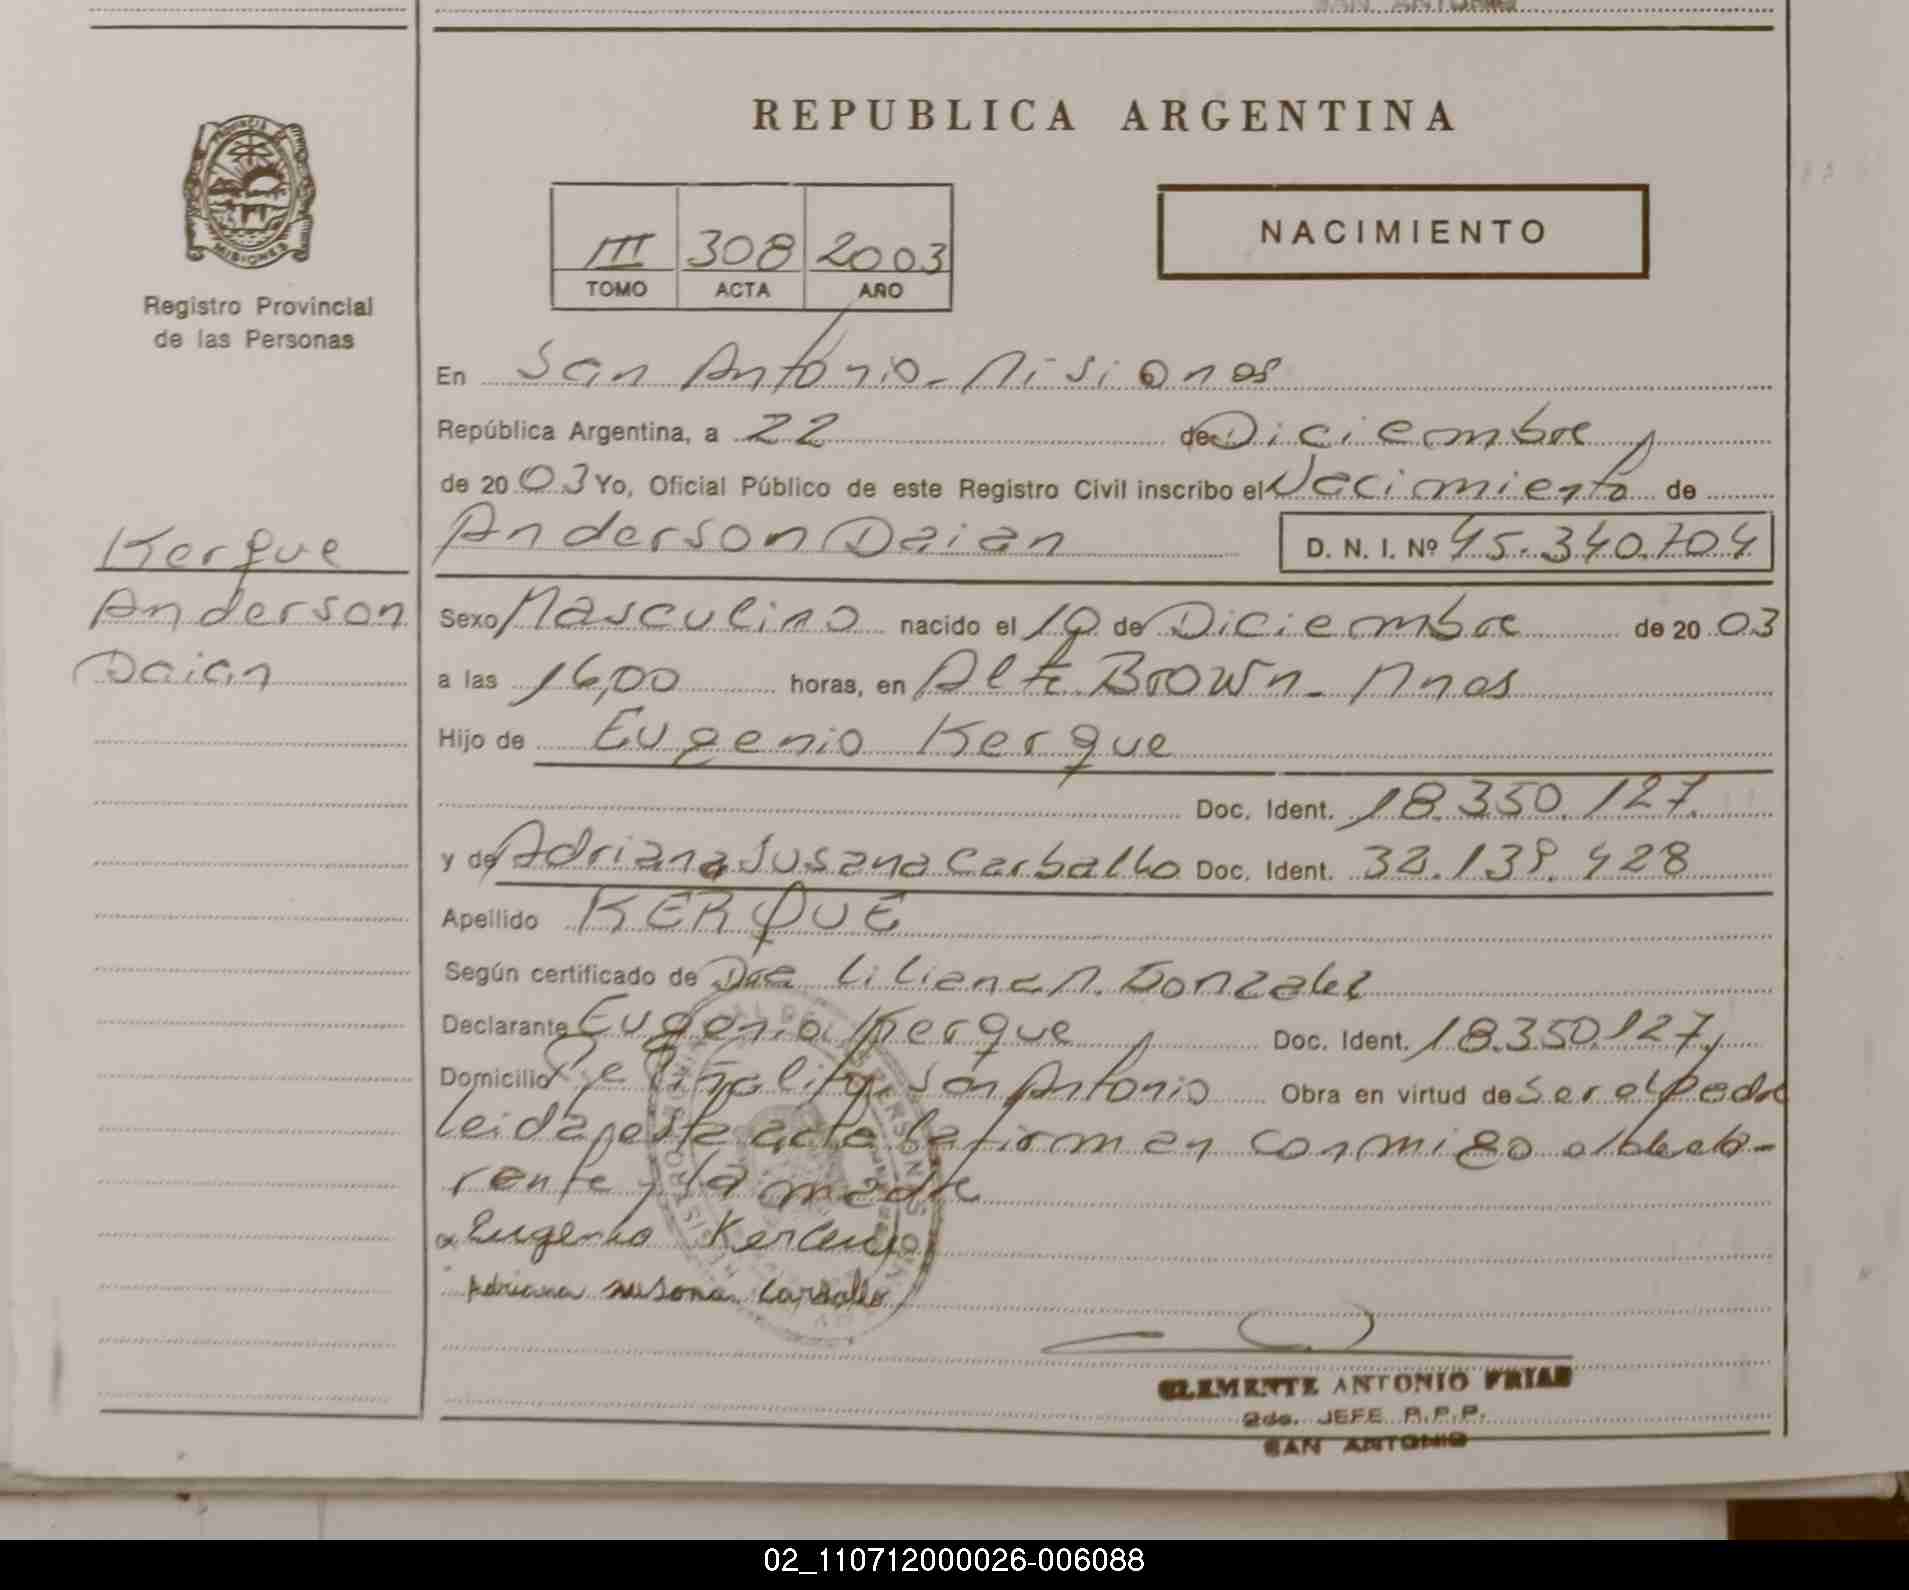 REPUBLICA ARGENTINA
PROVINCIA DE MISIONES
Registro Provincial
de las Personas
III 308 2003
TOMO ACTA AÑO
NACIMIENTO
En San Antonio - Misiones
República Argentina, a 22 de Diciembre
de 2003 Yo, Oficial Público de este Registro Civil inscribo el Nacimiento de
Anderson Daian D. N. I. Nº 45.340.704
Kerque
Anderson
Daian
Sexo Masculino nacido el 19 de Diciembre de 2003
a las 16,00 horas, en Alte Brown - Mnes
Hijo de Eugenio Kerque
Doc. Ident. 18.350.127.
y de Adriana Susana Carballo Doc. Ident. 32.139.428
Apellido KERQUE
Según certificado de Dra Liliana N. Gonzalez
Declarante Eugenio Kerque Doc. Ident. 18.350.127,
Domicilio San Antonio Obra en virtud de Ser el Padre
Leida este acta la firman conmigo el Decla-
rante y la madre
Eugenio
Adriana Susana Carballo
CLEMENTE ANTONIO FRIAS
2do. JEFE R.P.P.
SAN ANTONIO
02_110712000026-006088